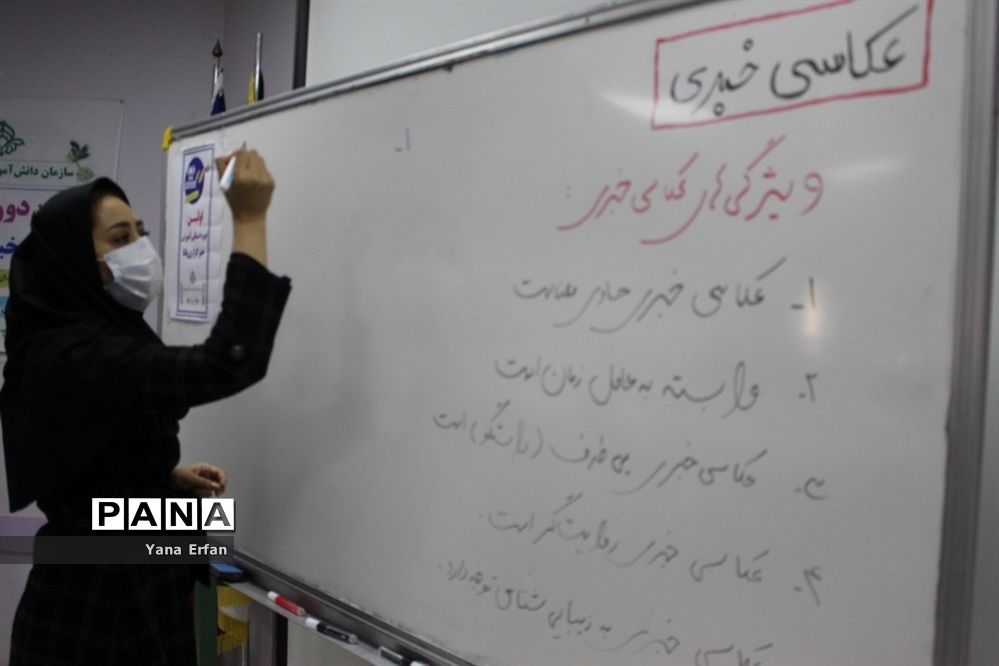 عکاسی خبری
ویژگی های عکاسی خبری :
۱- عکاسی خبری حادی معناست
۲. وابسته به عامل زمان است
۳. عکاسی خبری بی طرف (راستگو) است
۴. عکاسی خبری روایت گر است.
عکاسی خبری به زیبایی شناسی توجه دارد.
۱-
سازمان دانش‌آمو
دور
خبر
اولین
PANA
Yana Erfan